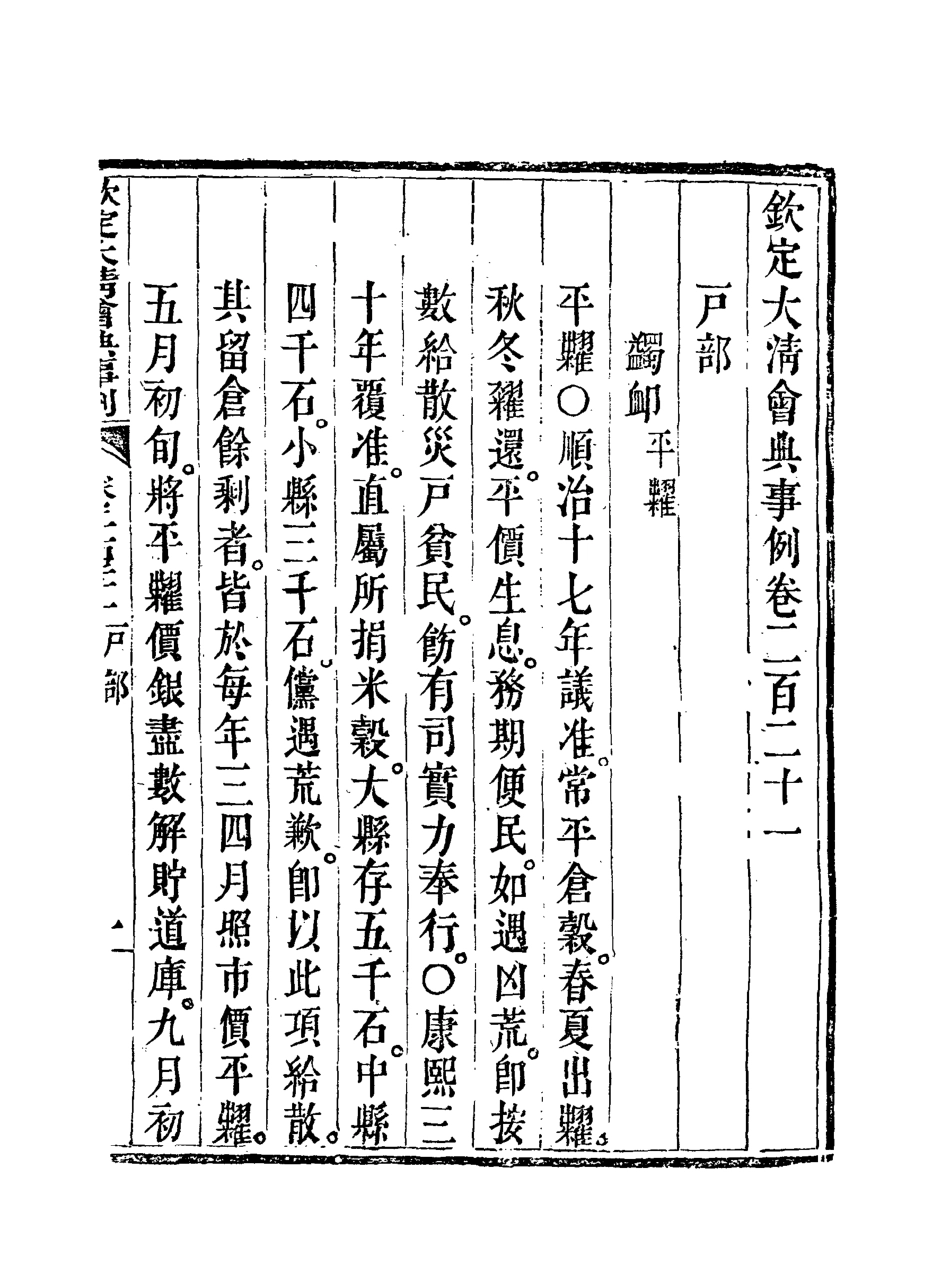 欽定大淸會典事例卷二百二十一
戸部
蠲卹平糶
平糶○順治十七年議准。常平倉穀。春夏出糶。
秋冬糴還。平價生息。務期便民。如遇凶荒。卽按
數給散災戸貧民。飭有司實力奉行。○康熙三
十年覆准。直屬所捐米穀。大縣存五千石。中縣
四千石。小縣三千石。儻遇荒歉。卽以此項給散。
其留倉餘剩者。皆於每年三四月照市價平糶。
五月初旬。將平糶價銀盡數解貯道庫。九月初
欽定大淸會典事例 戸部 一